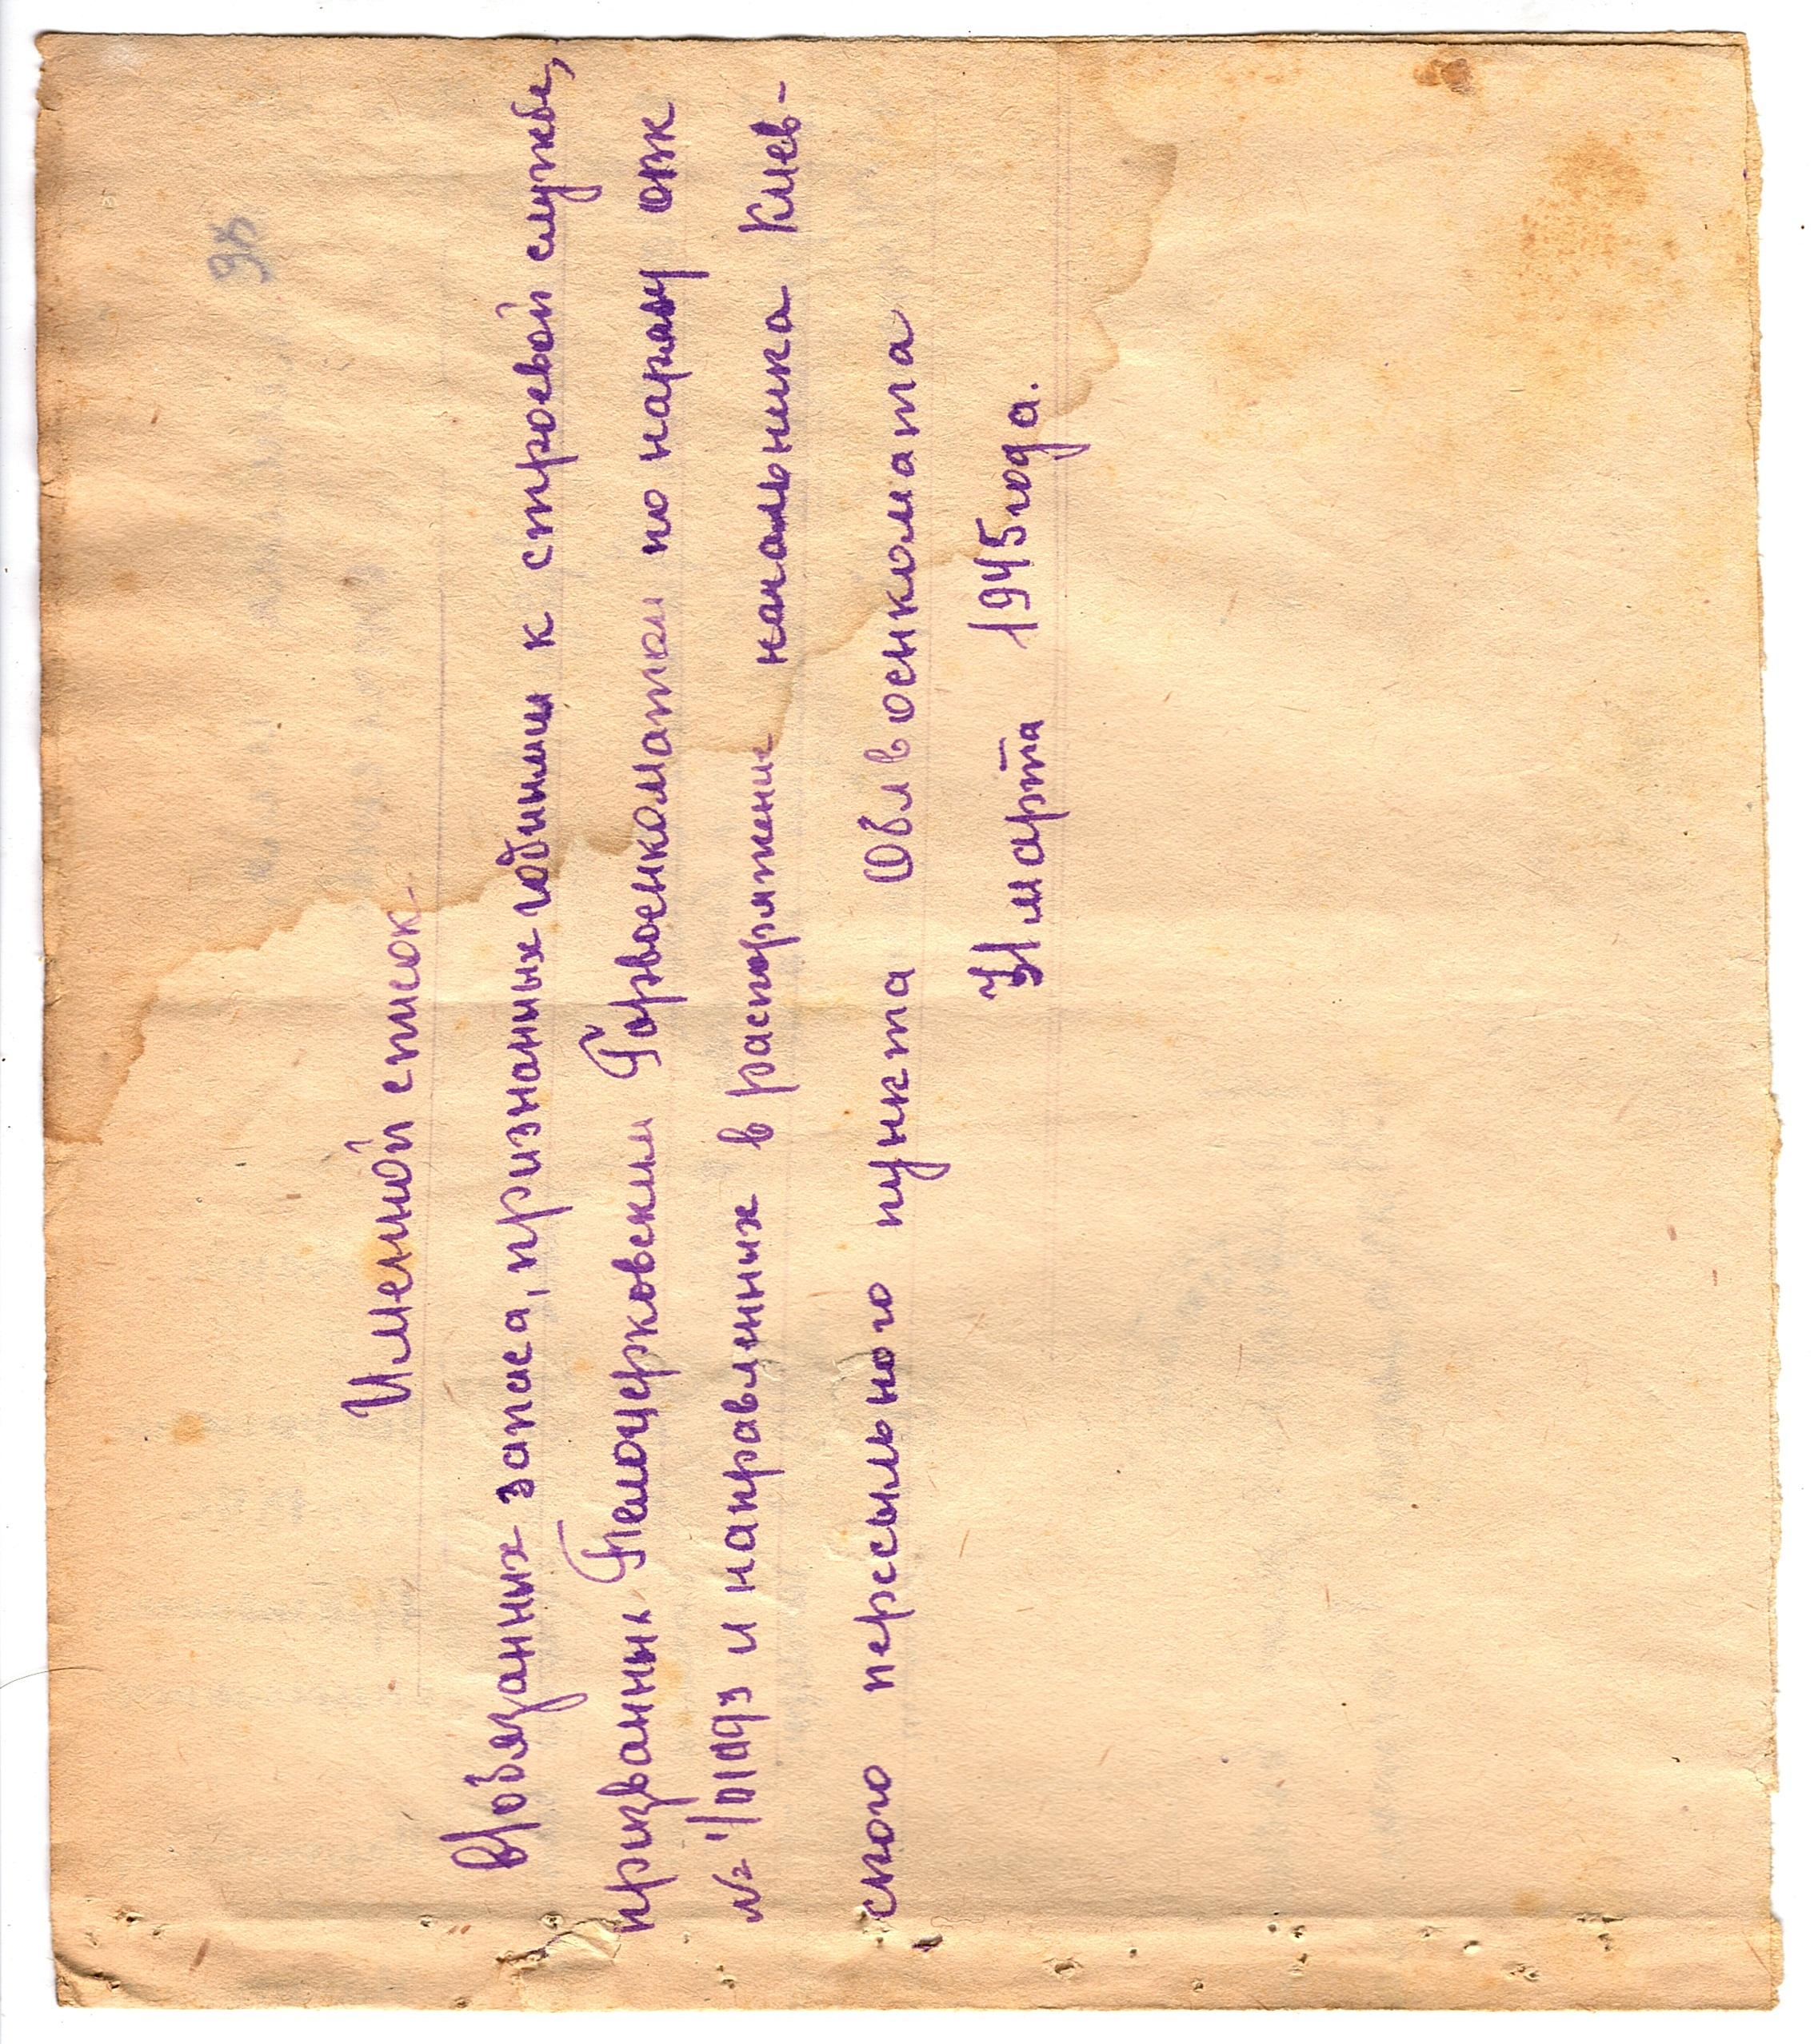 Именной список
В/обязанных запаса, признанных годными к строевой службе,
призванных Белоцерковским Горвоенкоматом по наряду ОВК
и направленных в распоряжение начальника Киев-
ского пересыльного пункта Облвоенкомата
марта 1945 года.